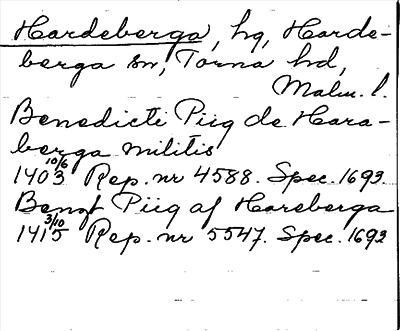 Hardeberga, hg, Harde-
berga sn, Torna hd,
Malm. l.
Benedicti Piig de Hara-
berga militis
1403 10/6 Rep. nr 4588. Spec. 1693
Bengt Piig af Hareberga
1415 3/10 Rep. nr 5547. Spec. 1692